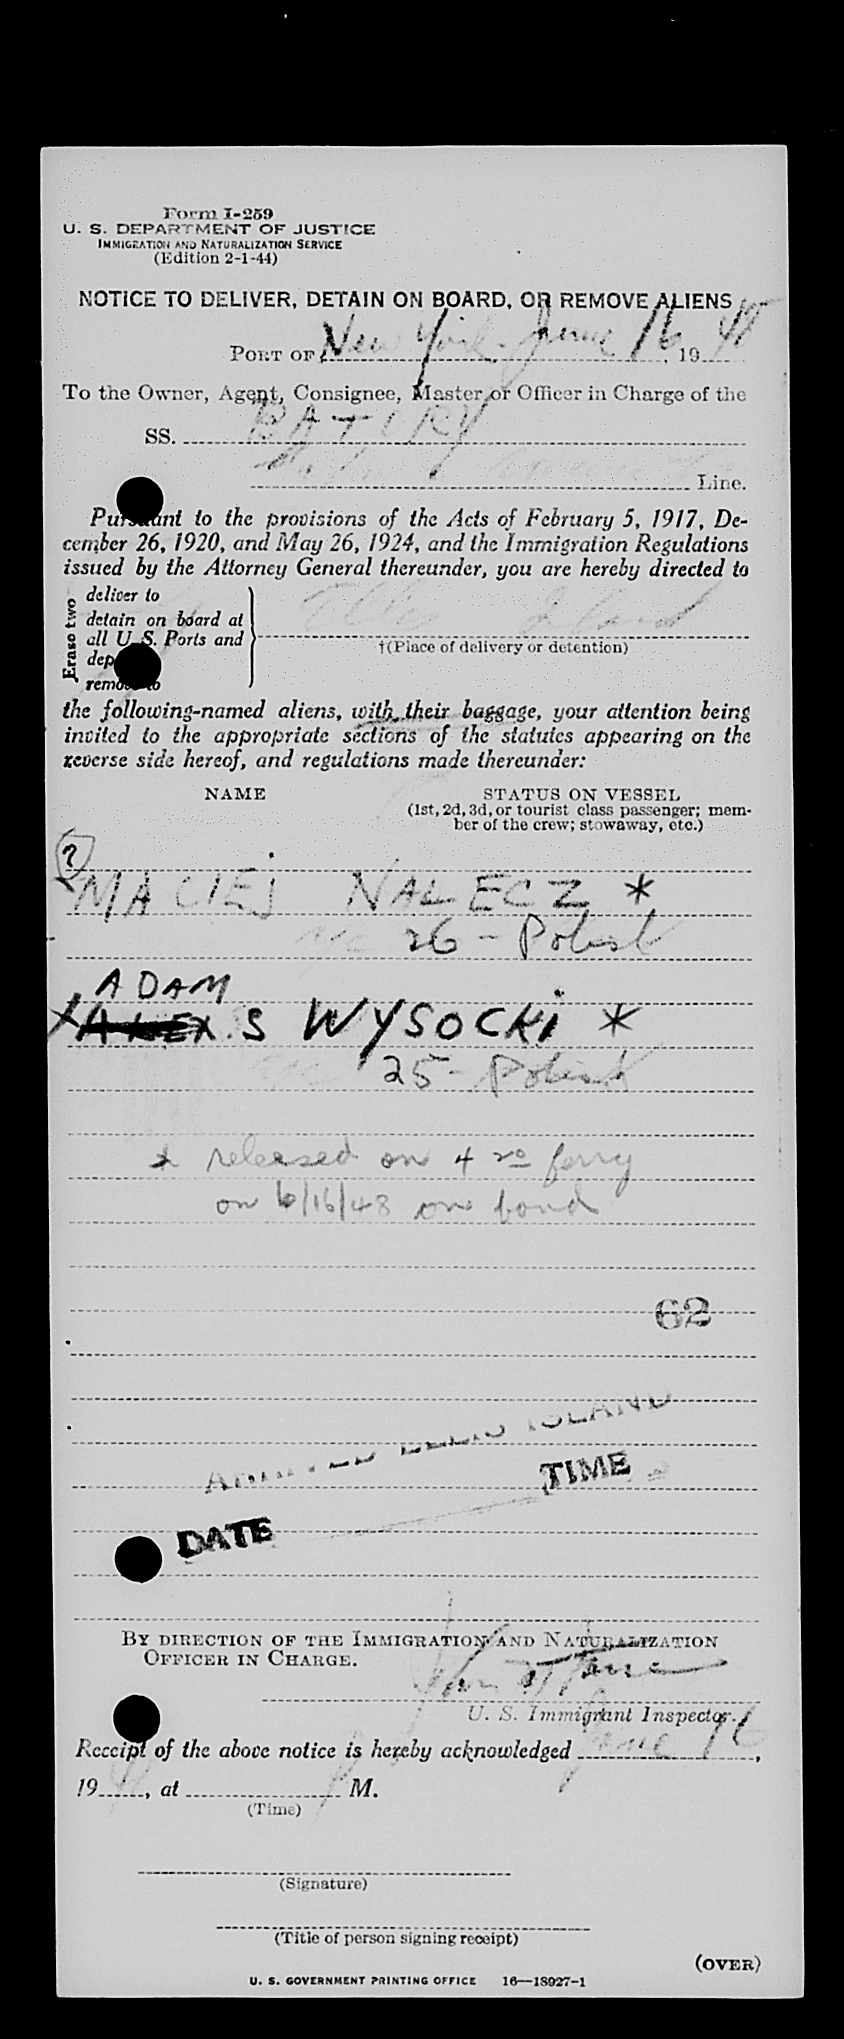 Form I-259
U. S. DEPARTMENT OF JUSTICE
IMMIGRATION AND NATURALIZATION SERVICE
(Edition 2-1-44)
NOTICE TO DELIVER, DETAIN ON BOARD, OR REMOVE ALIENS
PORT OF New York June 16, 1948
To the Owner, Agent, Consignee, Master or Officer in Charge of the
SS. BATORY
Line.
Pursuant to the provisions of the Acts of February 5, 1917, De-
cember 26, 1920, and May 26, 1924, and the Immigration Regulations
issued by the Attorney General thereunder, you are hereby directed to
Erase two
deliver to
detain on board at
all U. S. Ports and
dep
remove to
Ellis Island
†(Place of delivery or detention)
the following-named aliens, with their baggage, your attention being
invited to the appropriate sections of the statutes appearing on the
reverse side hereof, and regulations made thereunder:
NAME STATUS ON VESSEL
(1st, 2d, 3d, or tourist class passenger; mem-
ber of the crew; stowaway, etc.)
?
MACIEJ NALECZ *
26 - Polish
ADAM
ALEX. S WYSOCKI *
25 - Polish
* released on 4 20 ferry
on 6/16/48 on bond
62
ARRIVED ELLIS ISLAND
TIME
DATE
BY DIRECTION OF THE IMMIGRATION AND NATURALIZATION
OFFICER IN CHARGE.
U. S. Immigrant Inspector.
Receipt of the above notice is hereby acknowledged June 16,
19, at M.
(Time)
(Signature)
(Title of person signing receipt)
(OVER)
U. S. GOVERNMENT PRINTING OFFICE 16—18927-1